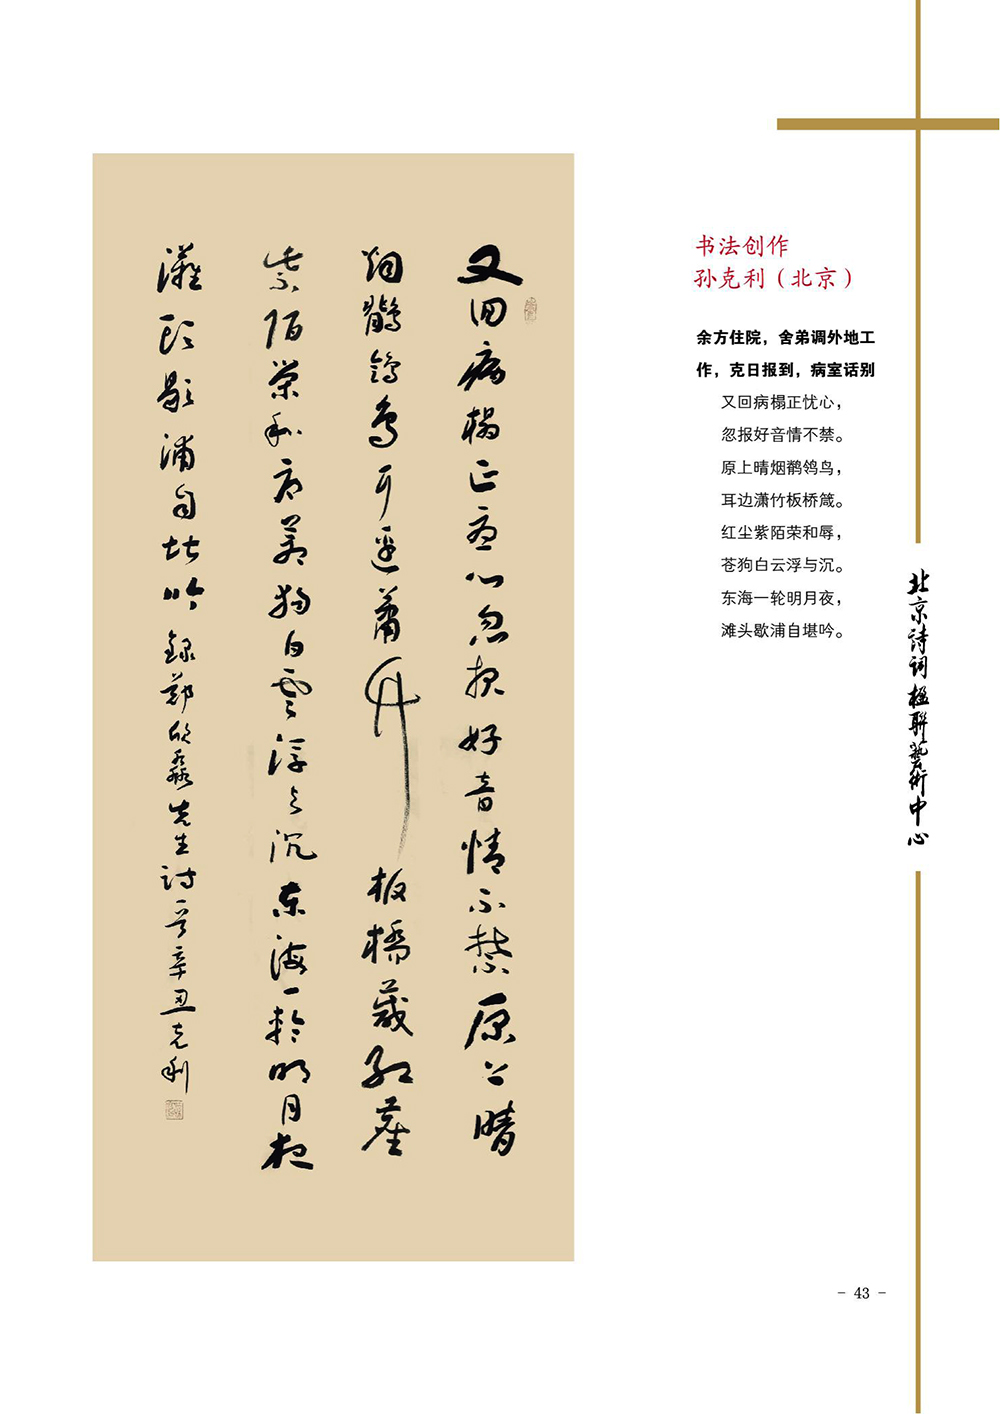 又回病榻正忧心忽报好音情不禁原上晴
烟鹡鸰鸟耳边萧竹板桥箴红尘
紫陌荣和辱苍狗白云浮与沉东海一轮明月夜
滩头歇浦自堪吟 录郑欣淼先生诗一首辛丑克利
书法创作
孙克利（北京）
余方住院，舍弟调外地工
作，克日报到，病室话别
又回病榻正忧心，
忽报好音情不禁。
原上晴烟鹡鸰鸟，
耳边潇竹板桥箴。
红尘紫陌荣和辱，
苍狗白云浮与沉。
东海一轮明月夜，
滩头歇浦自堪吟。
北京诗词楹联艺术中心
- 43 -